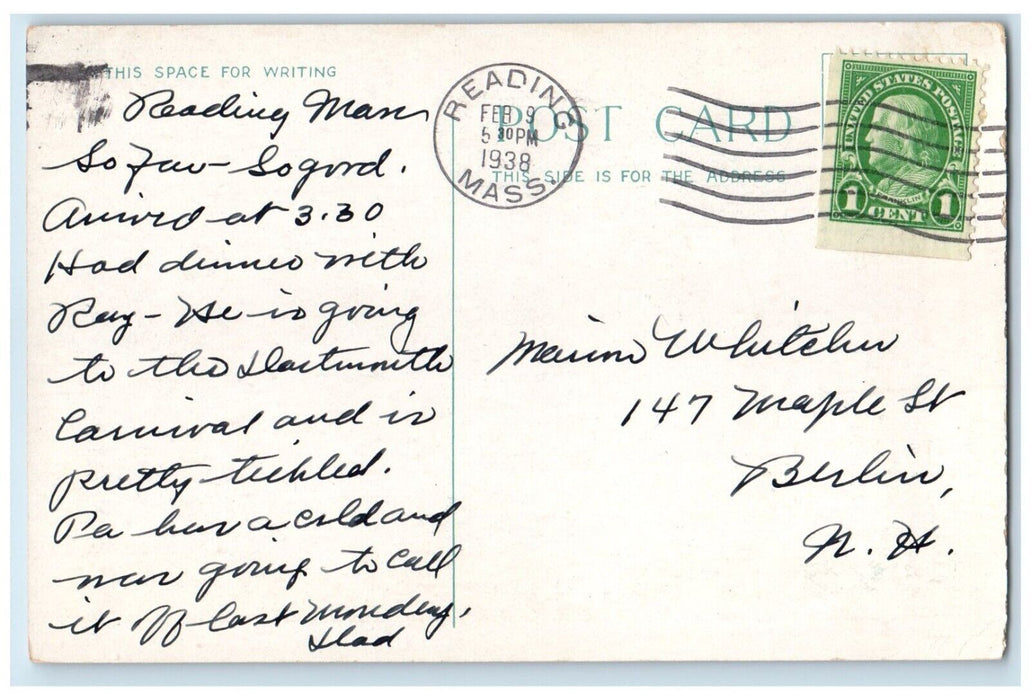 THIS SPACE FOR WRITING
Reading Mass
So Far - So good.
Arrived at 3.30
Had dinner with
Ray - He is going
to the Dartmouth
Carnival and is
pretty tickled.
Pa has a cold and
was going to call
it off last Monday.
Dad
POST CARD
THIS SIDE IS FOR THE ADDRESS
READING
FEB 9
5 30 PM
1938
MASS.
UNITED STATES POSTAGE
FRANKLIN
1 CENT 1
Marion Whitcher
147 Maple St
Berlin,
N. H.